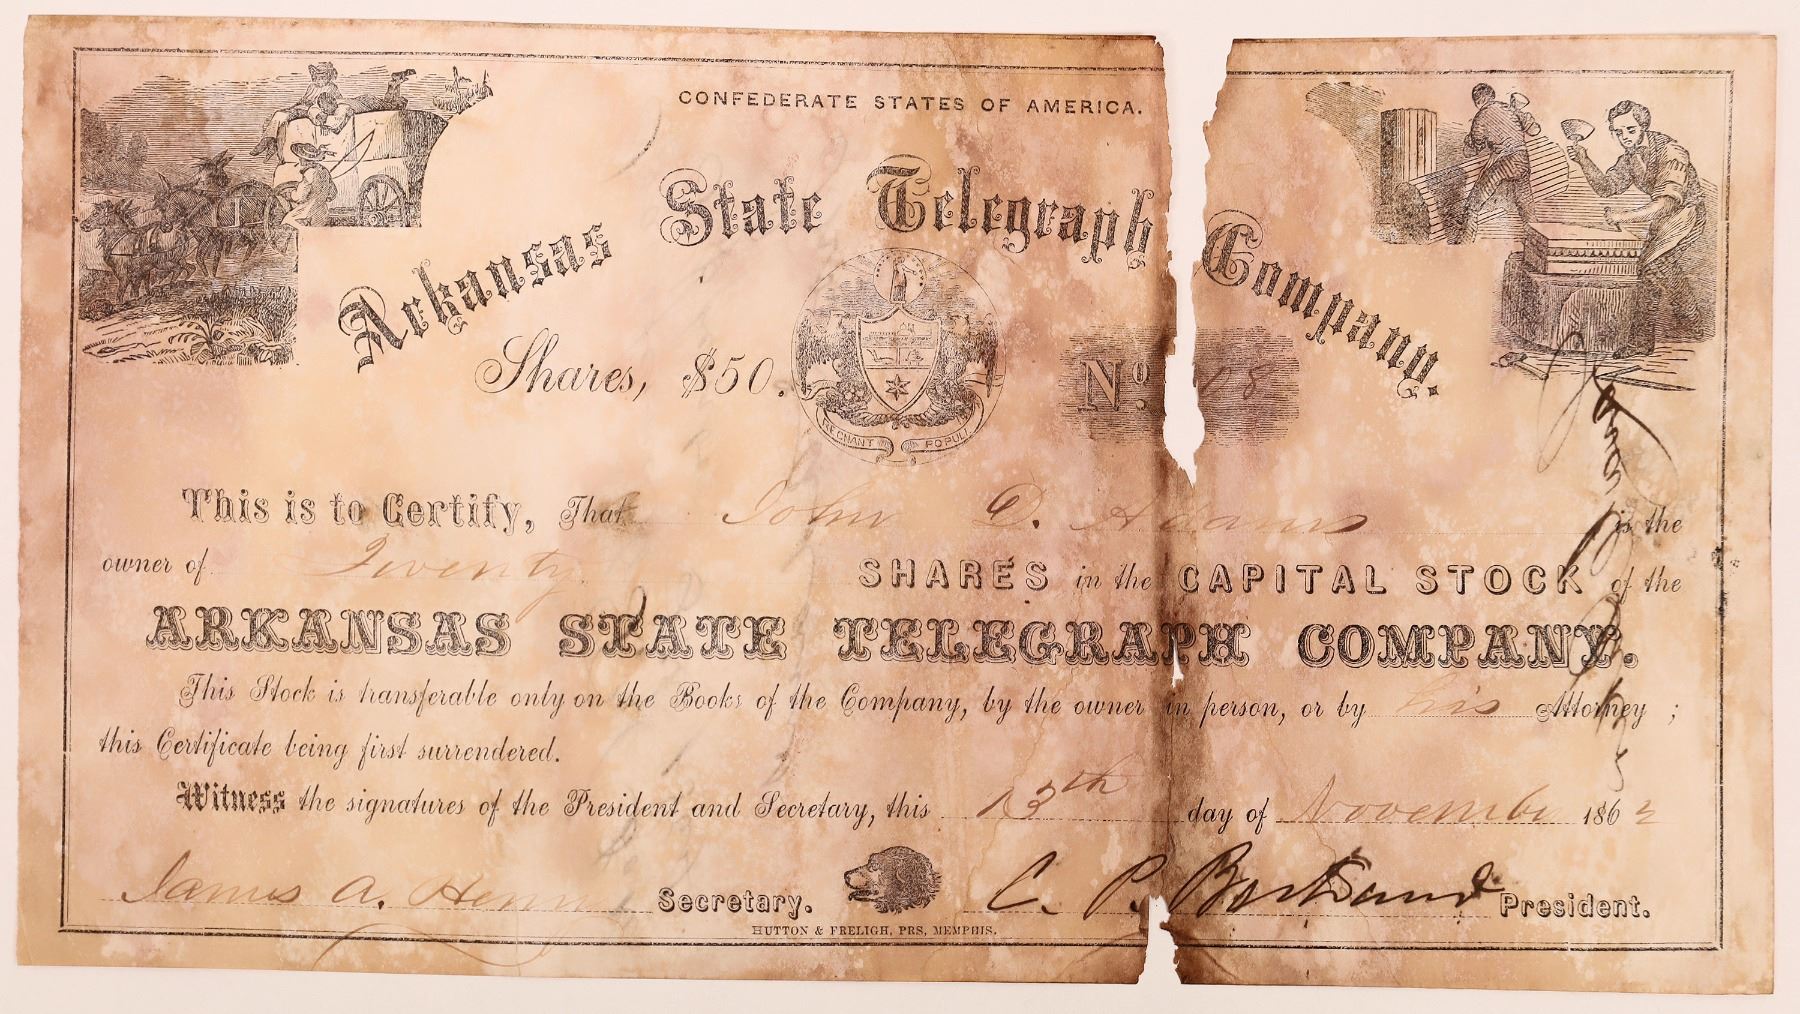 CONFEDERATE STATES OF AMERICA.
Arkansas State Telegraph Company.
Shares, $50. No. 08
REGNANT POPULI
This is to Certify, That John D. Adams is the
owner of Twenty SHARES in the CAPITAL STOCK of the
ARKANSAS STATE TELEGRAPH COMPANY.
This Stock is transferable only on the Books of the Company, by the owner in person, or by his Attorney ;
this Certificate being first surrendered.
Witness the signatures of the President and Secretary, this 13th day of November 1862
James A. Henry Secretary. C. P. Bertrand President.
HUTTON & FRELIGH, PRS, MEMPHIS.